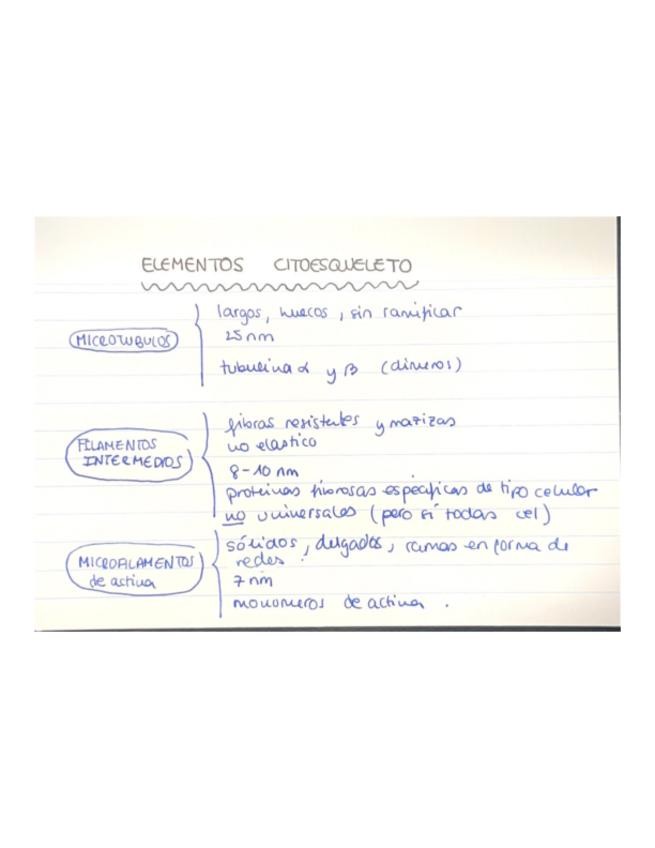 ELEMENTOS CITOESQUELETO
largos, huecos, sin ramificar
MICROTUBULOS
25 nm
tubulina α y β (dimeros)
fibras resistentes y matizas
FILAMENTOS INTERMEDIOS
no elastico
8-10 nm
proteinas fibrosas especificas de tipo celular
no universales (pero sí todas cel)
sólidos, delgados, ramas en forma de
redes.
MICROFILAMENTOS de actina
7 nm
monomeros de actina.